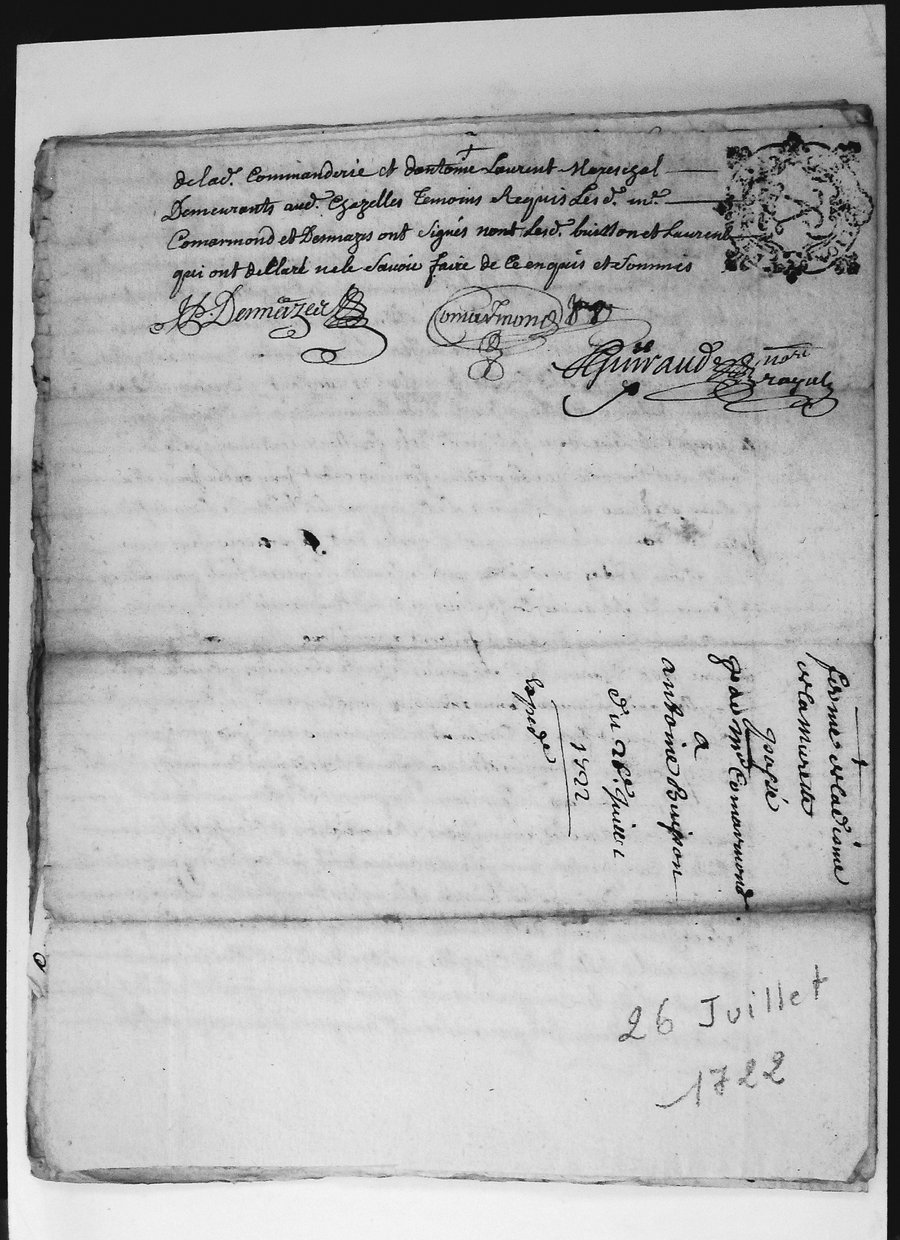 delad. Commanderie et dantoine Laurent Mareschal
Demeurants aud. Chazelles Temoins Requis Lesd. mr.
Comarmond et Desmazes ont signés nont Lesd. buisson et Laurent
qui ont declaré ne le Savoir faire de Ce enquis et Sommés
Desmazes
Comarmond
Guiraud nore
royal
ferme de la disme
de la Murette
passé
par Mr Comarmond
a
antoine Buisson
du 26e Juillet
1722
26 Juillet
1722